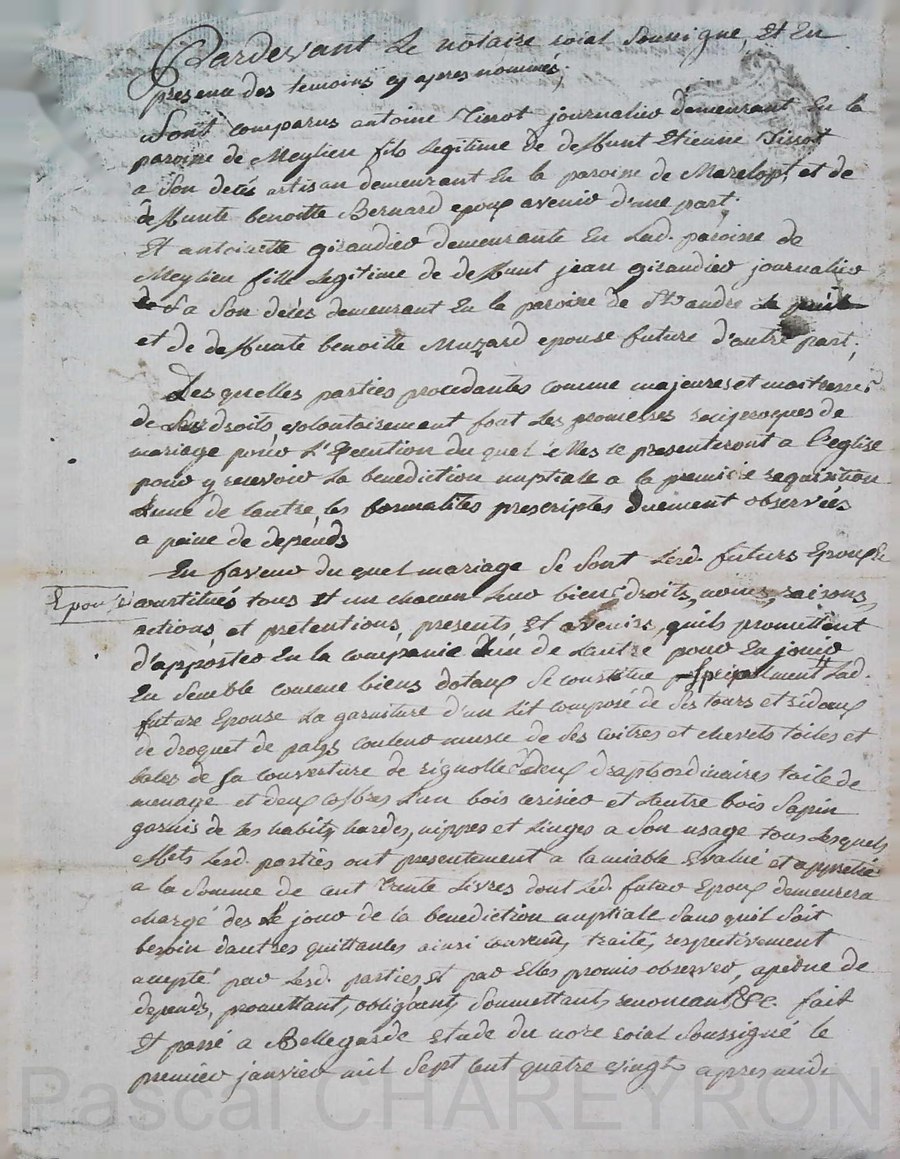 Pardevant Le notaire roial soussigné, Et En
presence des temoins cy apres nommés,
Sont comparus antoine Tissot journalier demeurant En la
paroisse de Meylieu fils Legitime de deffunt Etienne Tissot
a Son decés artisan demeurant En la paroisse de Marclopt, et de
deffunte benoitte Bernard epoux avenir d'une part.
Et antoinette girandier demeurante En Lad. paroisse de
Meylieu fille Legitime de deffunt jean girandier journalier
a Son decés demeurant En la paroisse de St andré le puits
et de deffunte benoitte Muzard epouse future d'autre part.
Les quelles parties procedantes comme majeures et maitresses
de Leurs droits volontairement font Les promesses reciproques de
mariage pour L'Execution du quel Elles se presenteront a l'eglise
pour y recevoir La benediction nuptialle a la premiere requisition
Lune de Lautre les formalités prescriptes duement observées
a peine de depends
En faveur du quel mariage Se Sont Lesd. futurs Epoux Et
Epouse constitués tous Et un chacun Leur biens, droits, noms, raisons,
actions, et pretentions, presents Et avenirs, quils promettent
d'apporter En la compagnie L'un de Lautre pour En jouir
En Semble comme biens dotaux Se constitue specialment Lad.
future Epouse La garniture d'un Lit composée de Ses tours et rideaux
de droguet de pays couleur musc de Ses coitres et chevets toiles et
bales de Sa couverture de rignolle deux draps ordinaires toile de
menage et deux coffres L'un bois cerisier et Lautre bois Sapin
garnis de Ses habits, hardes, nippes et Linges a Son usage tous Lesquels
effets Lesd. parties ont presentement a lamiable Evalué et appretié
a la Somme de cent trente Livres dont Led. futur Epoux demeurera
chargé des Le jour de la benediction nuptiale Sans quil Soit
besoin dautres quittances ainsi convenu, traité, respectivement
accepté par Lesd. parties, Et par Elles promis observer, apeine de
depends, promettant, obligeant, Soumettant, renoncant &c. fait
Et passé a Bellegarde Etude du nore roial Soussigné le
premier janvier mil Sept cent quatre vingt apres midi
Pascal CHAREYRON